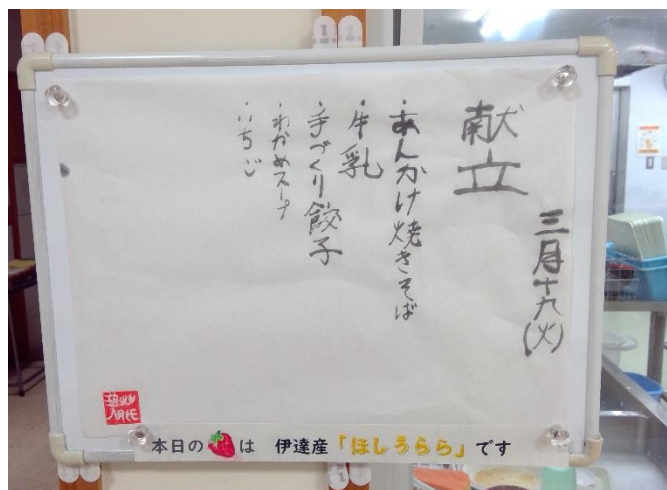 三月十九(火)
献立
・あんかけ焼きそば
・牛乳
・手づくり餃子
・わかめスープ
・いちご
本日の🍓は 伊達産「ほしうらら」です